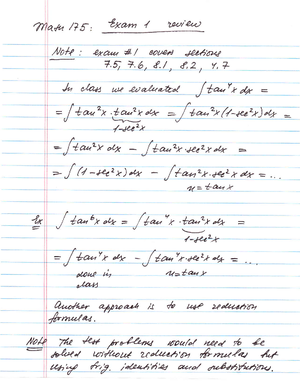 Math 175: Exam 1 review
Note: exam #1 covers sections
7.5, 7.6, 8.1, 8.2, 4.7
In class we evaluated ∫ tan⁴x dx =
= ∫ tan²x · tan²x dx = ∫ tan²x (1-sec²x) dx =
1-sec²x
= ∫ tan²x dx - ∫ tan²x · sec²x dx =
= ∫ (1-sec²x) dx - ∫ tan²x · sec²x dx = ...
u = tan x
Ex ∫ tan⁶x dx = ∫ tan⁴x · tan²x dx =
1-sec²x
= ∫ tan⁴x dx - ∫ tan⁴x · sec²x dx = ...
done in u = tan x
class
Another approach is to use reduction
formulas.
Note The test problems would need to be
solved without reduction formulas but
using trig. identities and substitutions.